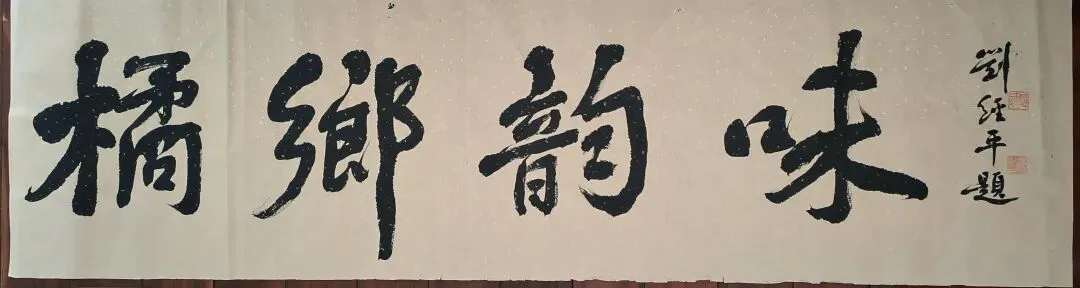 橘鄉韵味
劉經平題